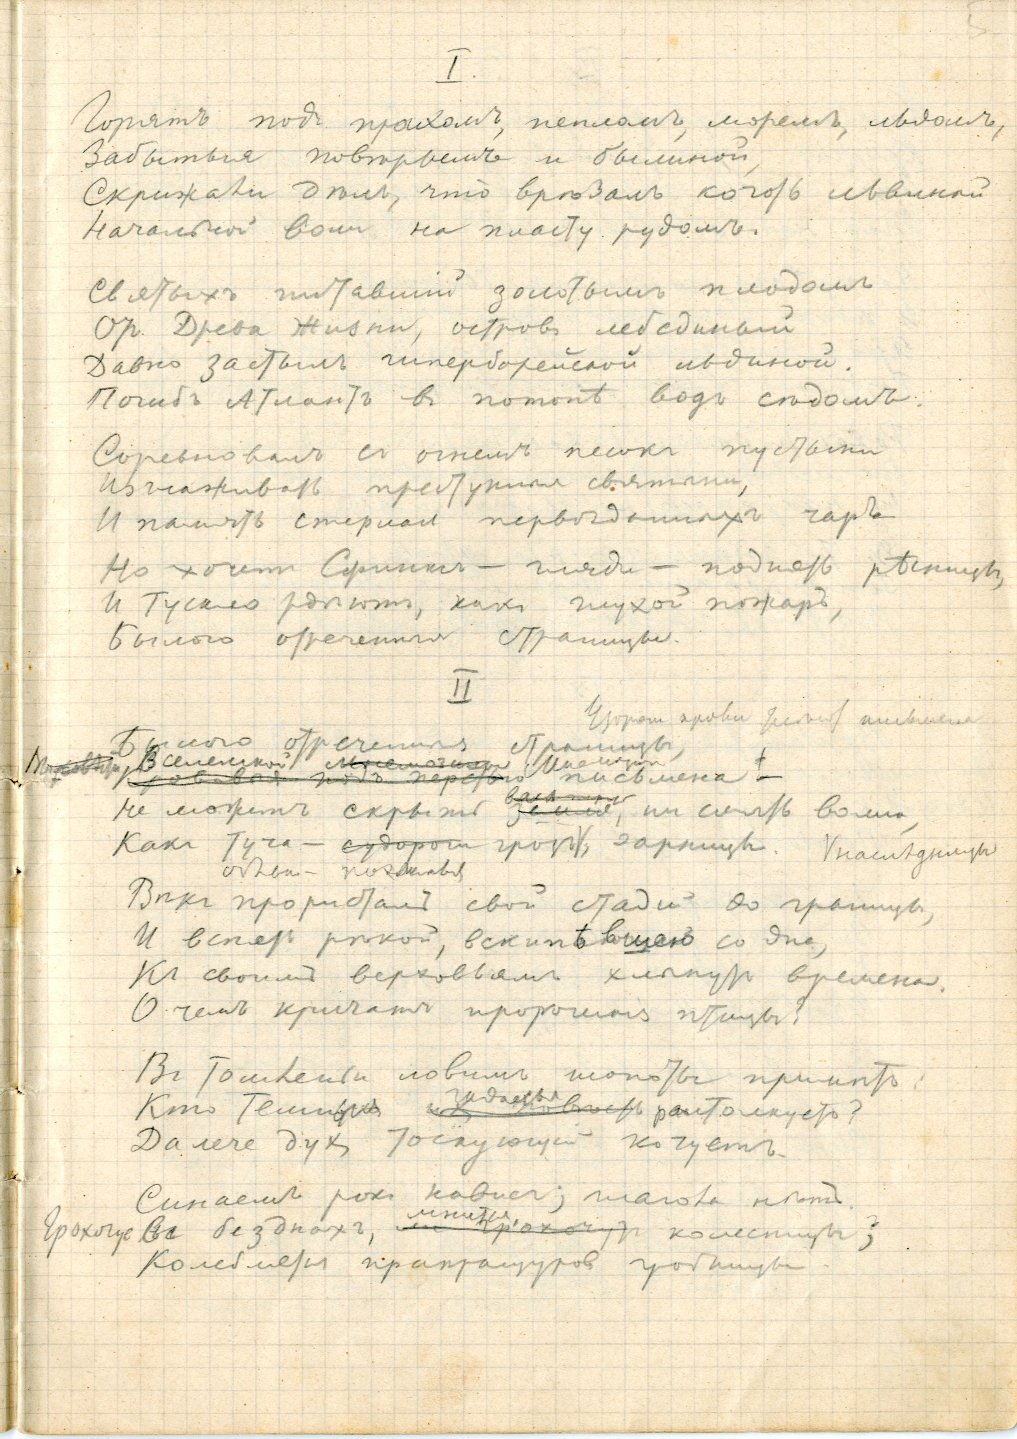 I.
Горятъ подъ прахомъ, пепломъ, моремъ, льдомъ,
Забытыя повѣрьемъ и былиной,
Скрижали дѣлъ, что врѣзалъ коготь львиный
Начальной воли на пласту рудомъ.
Святыхъ питавшій золотымъ плодомъ
От Древа Жизни, островъ лебединый
Давно застылъ гиперборейской льдиной.
Погибъ Атлантъ въ потопѣ водъ сѣдомъ.
Соревновалъ съ огнемъ песокъ пустыни
Изглаживать преступныя святыни,
И память стерла первозданныхъ чаръ
Но хочетъ Сфинксъ – гляди – поднять рѣсницы,
И тускло рдѣютъ, какъ глухой пожаръ,
Былого отреченныя страницы.
II
Узоромъ крови письмена
Былого отреченныя страницы,
Вселенской
подъ перстью письмена –
Не можетъ скрыть земля, ни смыть волна,
Какъ туча – судороги грозъ, зарницы. наслѣдницы
Вѣкъ прористалъ свой стадій до границы,
И вспять рѣкой, вскипѣвшею со дна,
Къ своимъ верховьямъ хлынутъ времена.
О чемъ кричатъ пророчныя птицы?
Въ томленьи ловимъ шопоты примѣтъ:
гаданья
Кто темную повѣсть растолкуетъ?
Далече духъ тоскующій кочуетъ.
Синаемъ рокъ нависъ; глагола нѣтъ.
мнится
Грохочутъ Въ безднахъ, грохочутъ колесницы;
Колеблются пращуровъ гробницы.